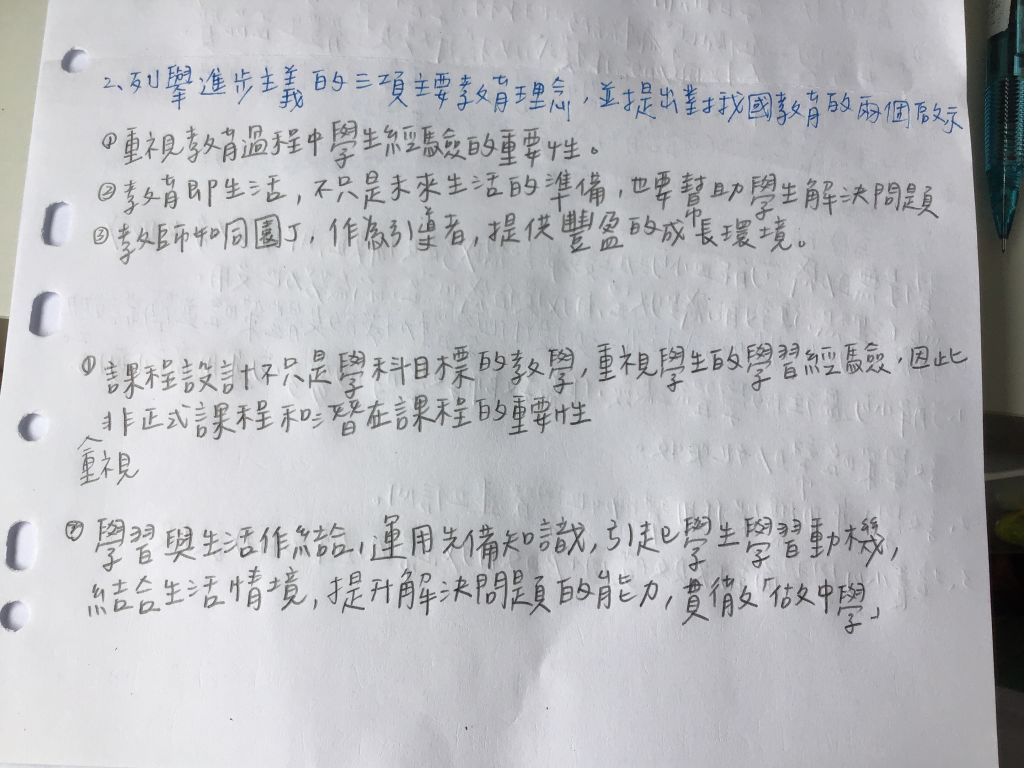 2、列舉進步主義的三項主要教育理念，並提出對我國教育的兩個啟示
①重視教育過程中學生經驗的重要性。
②教育即生活，不只是未來生活的準備，也要幫助學生解決問題
③教師如同園丁，作為引導者，提供豐盈的成長環境。
①課程設計不只是學科目標的教學，重視學生的學習經驗，因此
非正式課程和潛在課程的重要性
重視
②學習與生活作結合，運用先備知識，引起學生學習動機，
結合生活情境，提升解決問題的能力，貫徹「做中學」